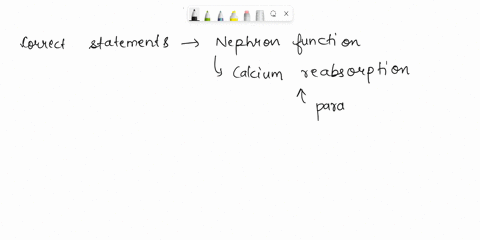 Correct statements → Nephron function
↳ Calcium reabsorption
↑
para